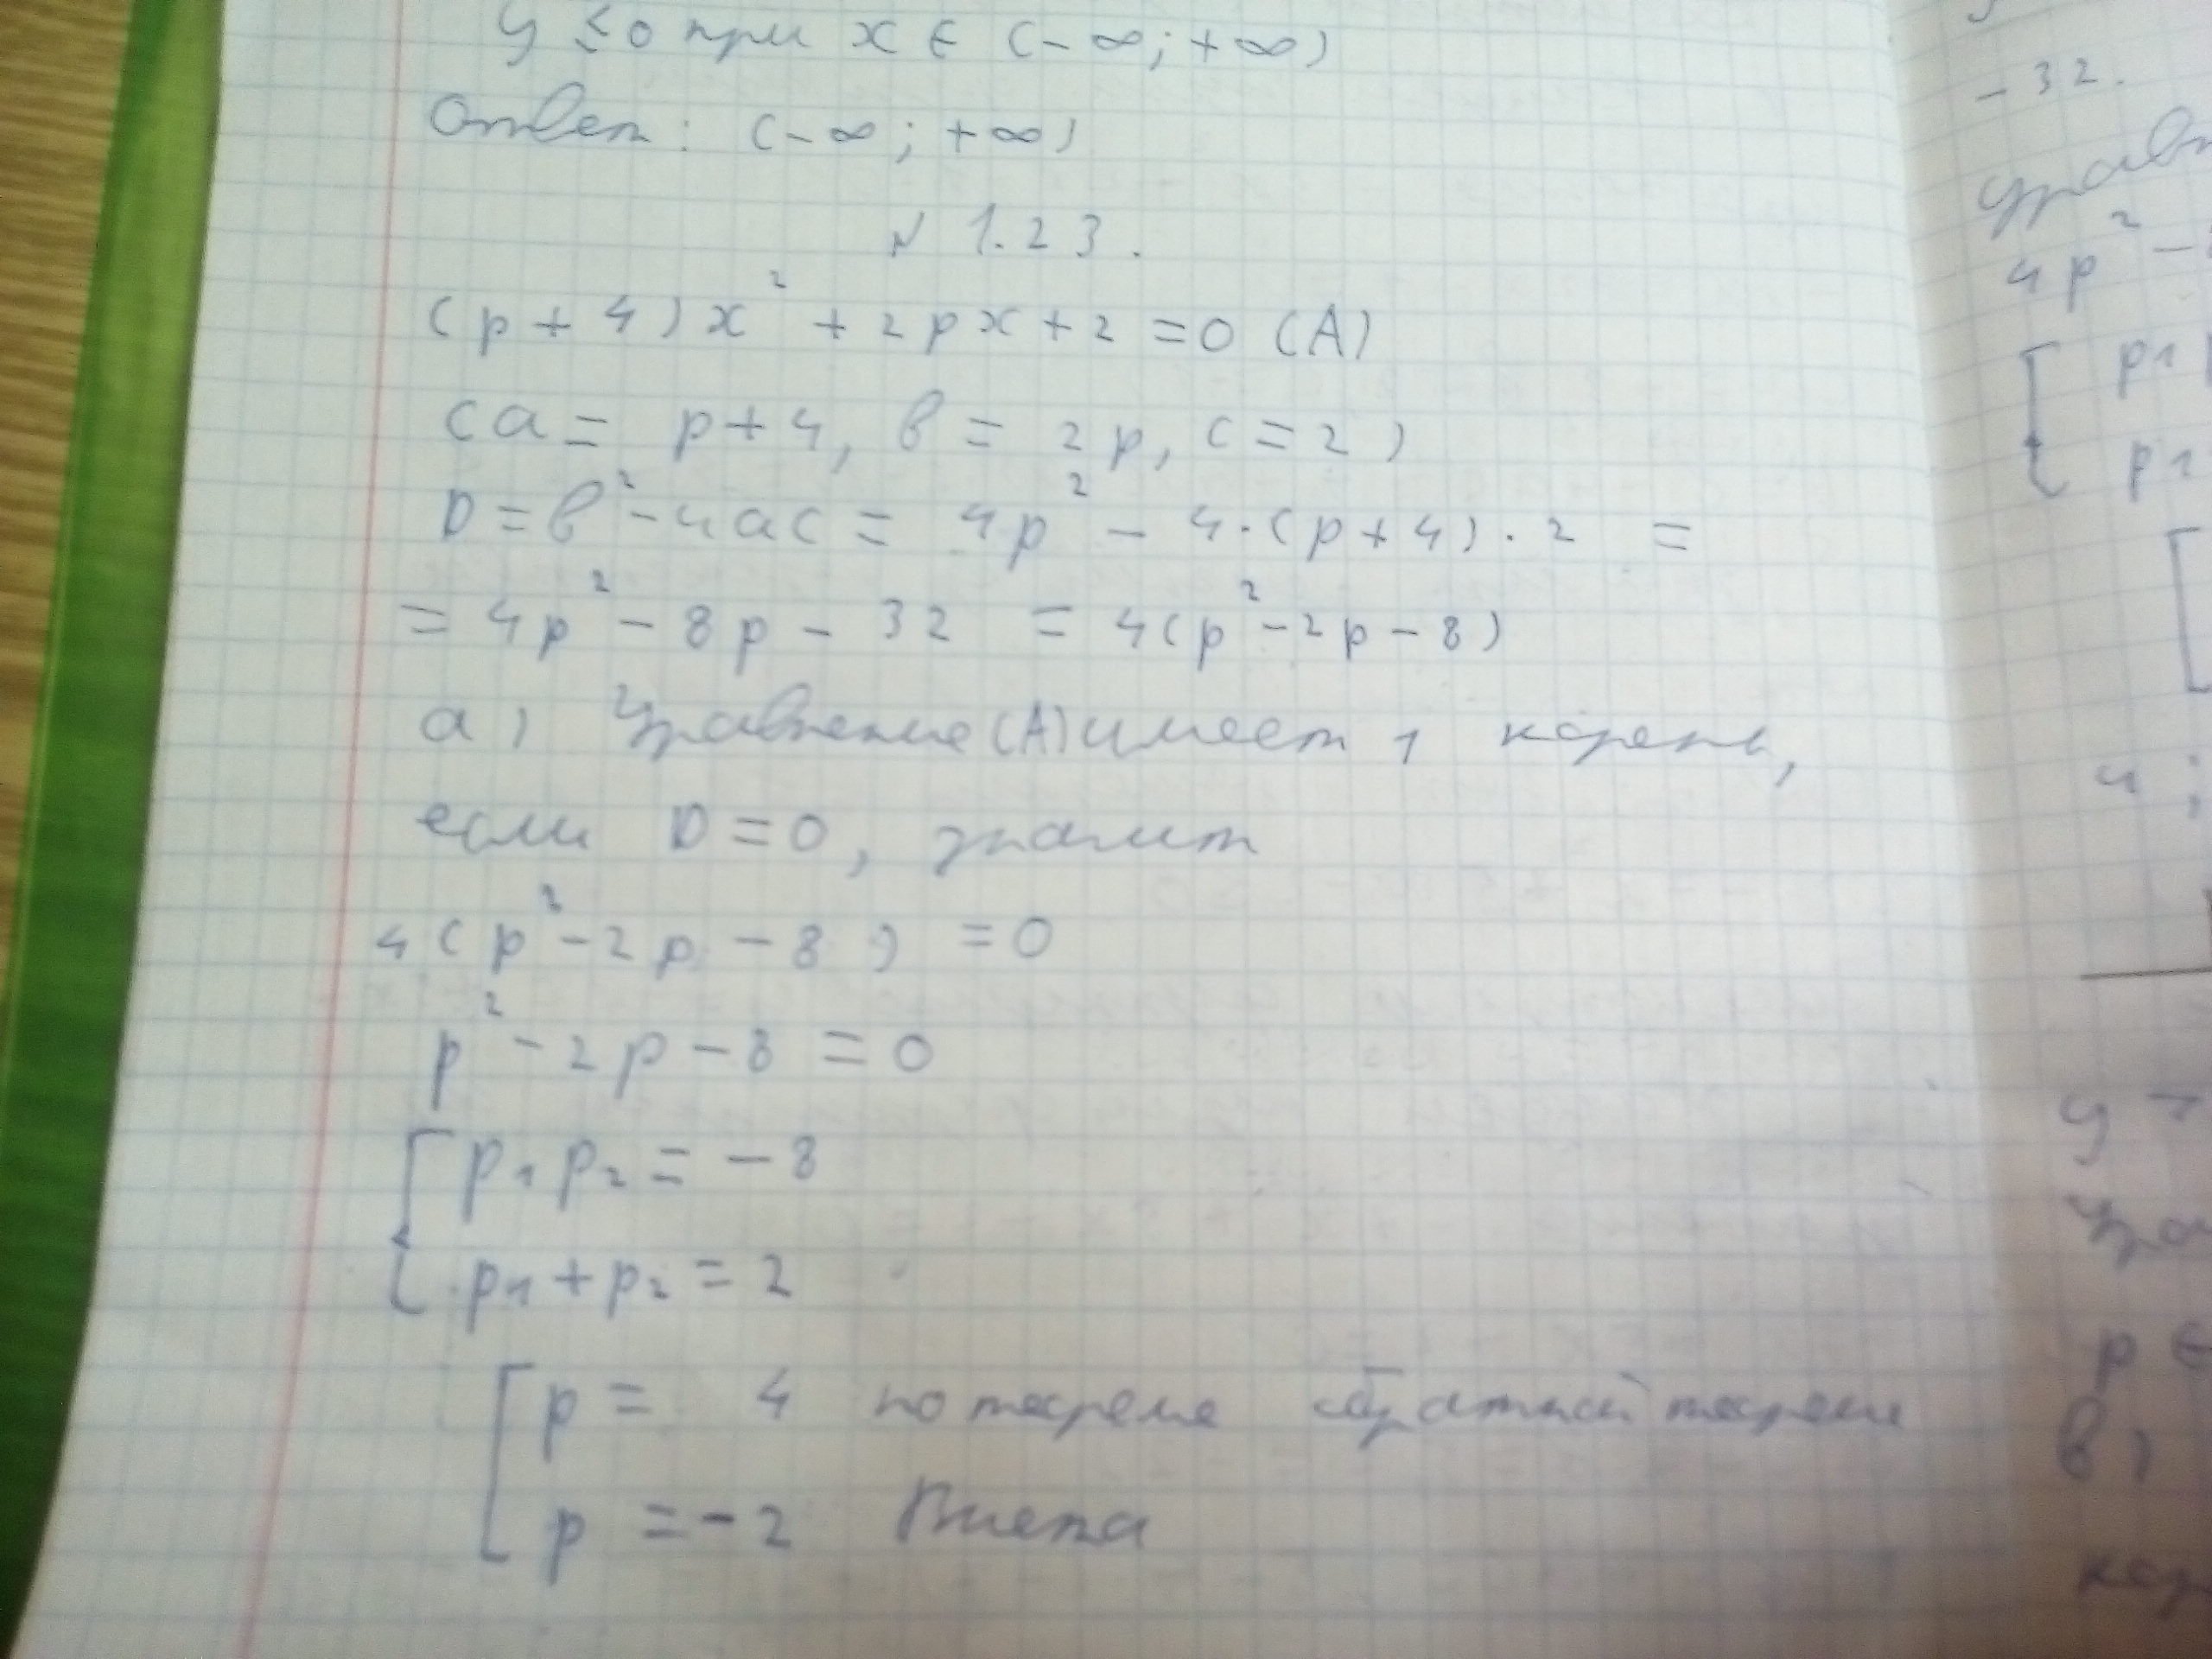 y ≤ 0 при x ∈ (-∞; +∞)
Ответ: (-∞; +∞)
N 1.23.
(p + 4) x² + 2px + 2 = 0 (A)
(a = p + 4, b = 2p, c = 2)
D = b² - 4ac = 4p² - 4·(p + 4)·2 =
= 4p² - 8p - 32 = 4(p² - 2p - 8)
а) Уравнение (А) имеет 1 корень,
если D = 0, значит
4(p² - 2p - 8) = 0
p² - 2p - 8 = 0
{ p₁p₂ = -8
p₁ + p₂ = 2
[ p = 4 по теореме обратной теореме
p = -2 Виета
-32.
4p² -
p₁
4;
y
p ∈
в)